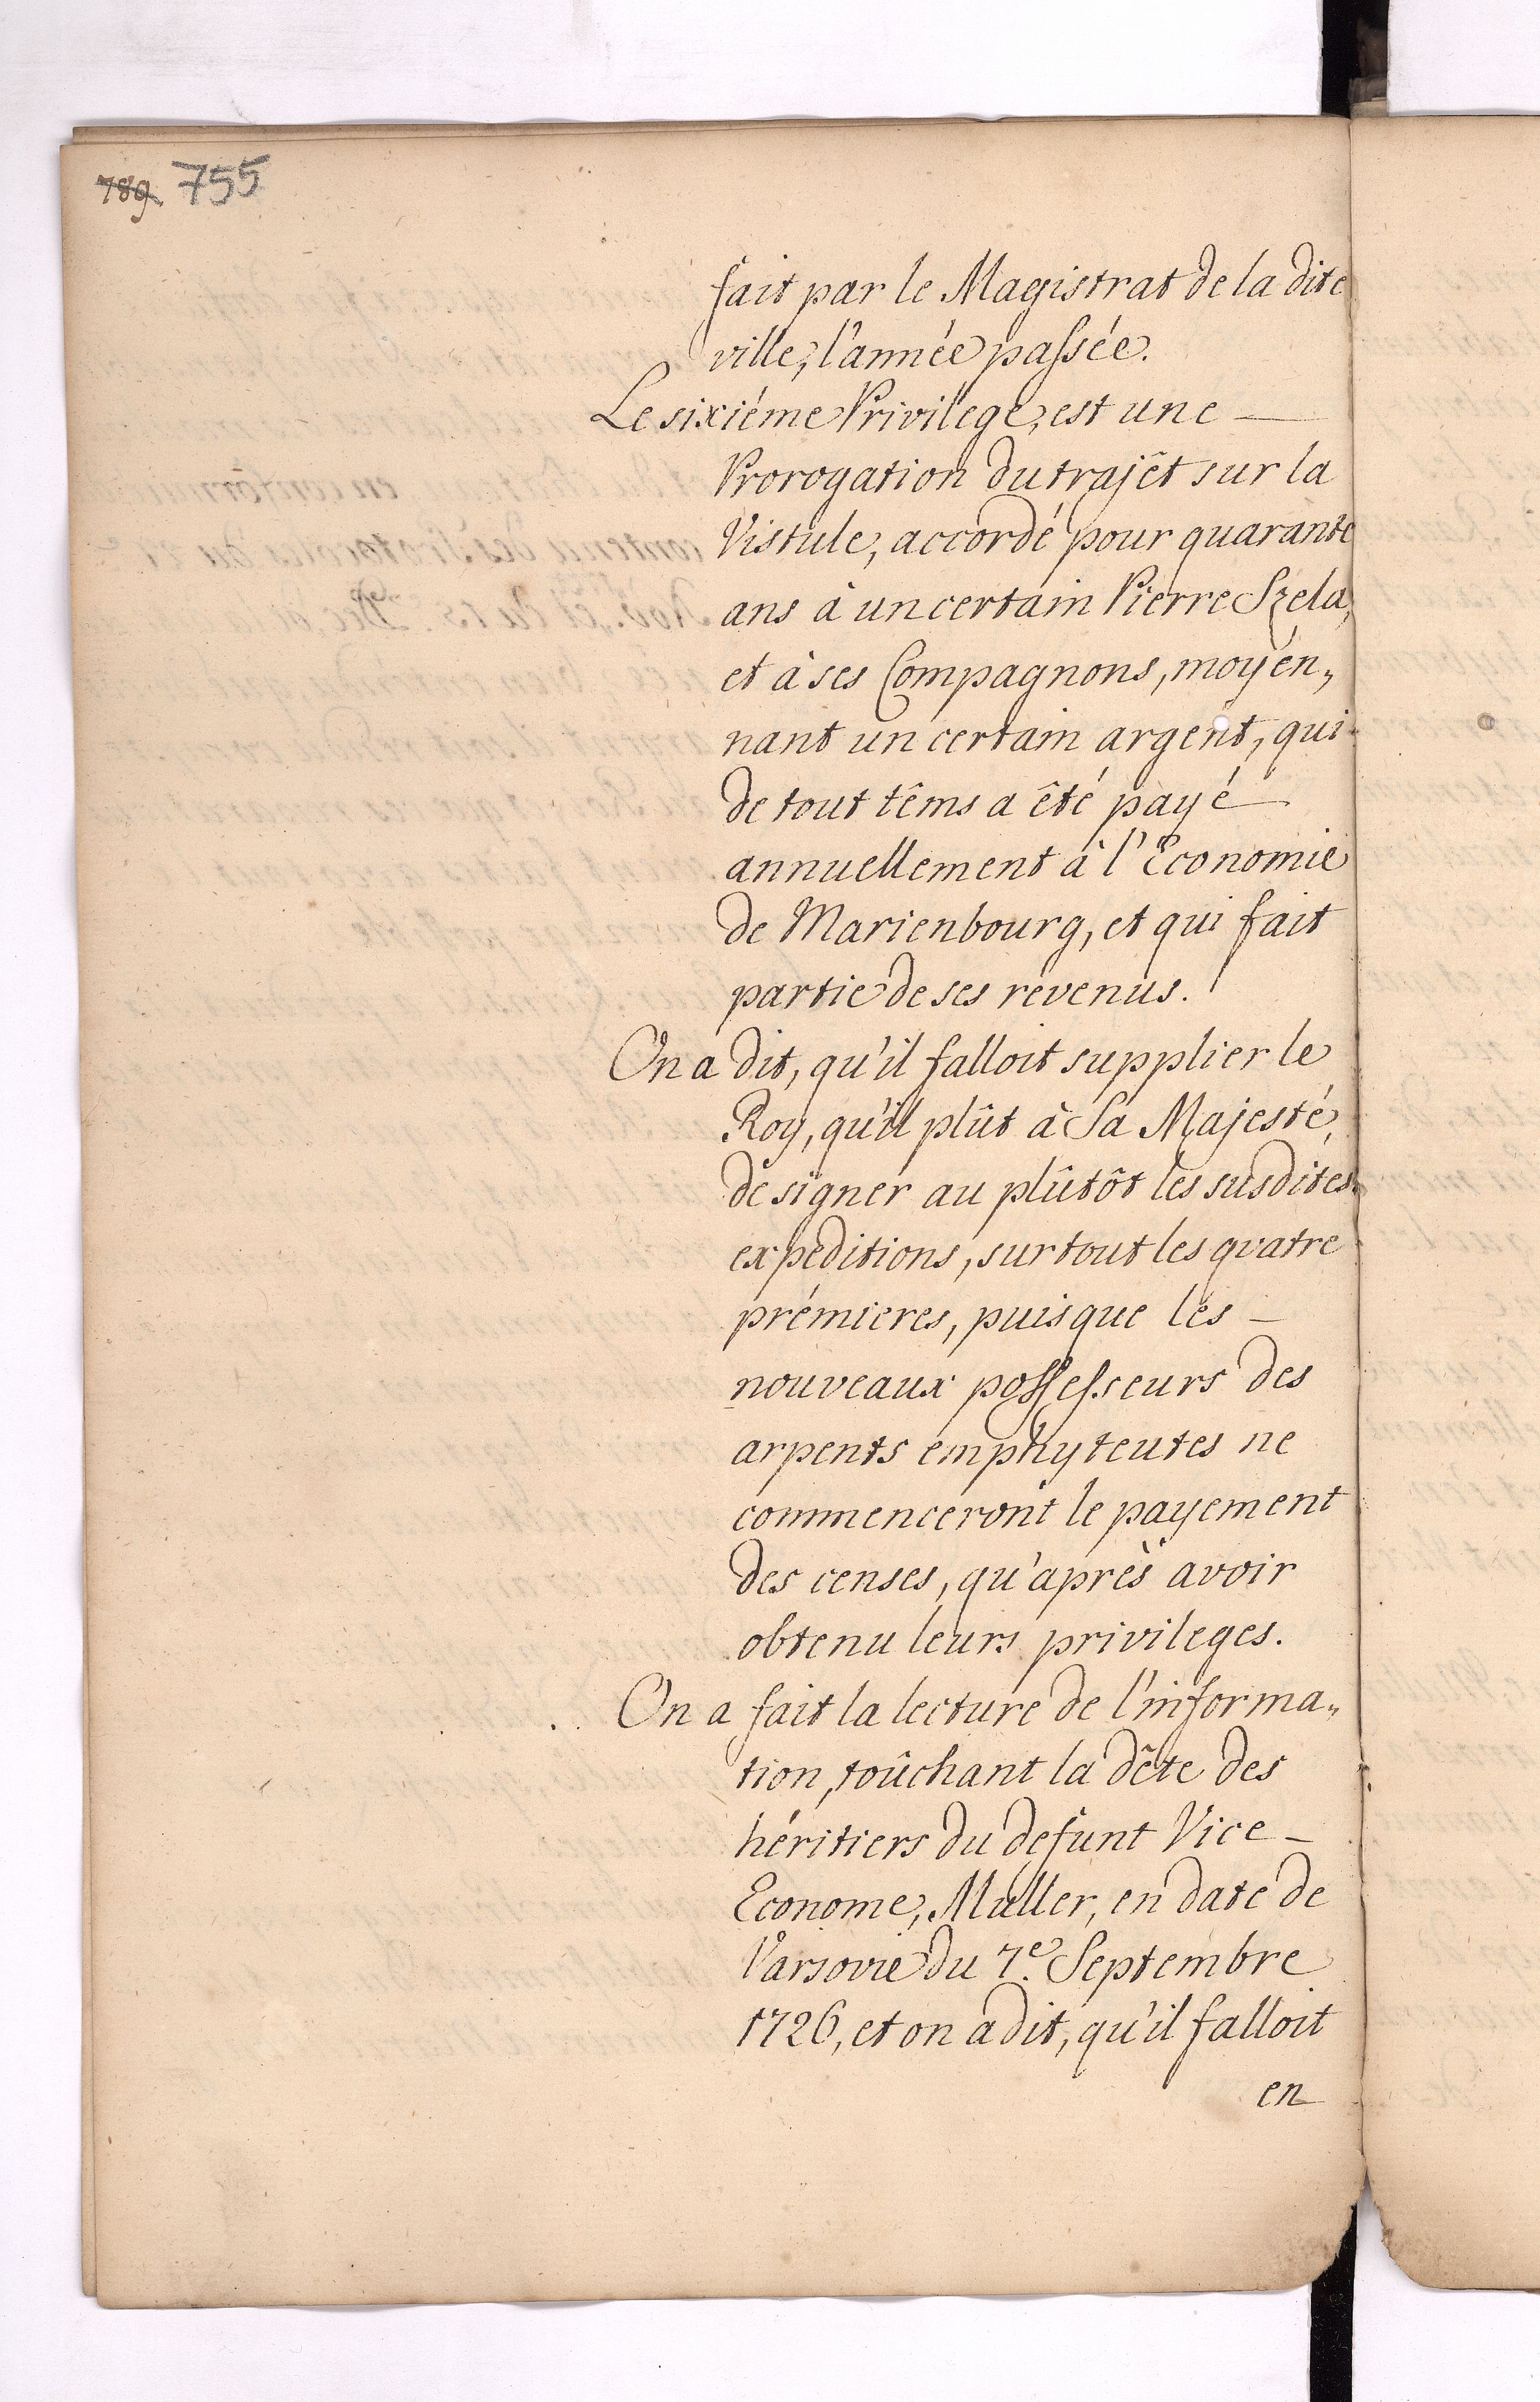 789. 755
fait par le Magistrat de la dite
ville, l'année passée.
Le sixiéme Privilege, est une —
Prorogation du trajêt sur la
Vistule, accordé pour quarante
ans à un certain Pierre Szela,
et à ses Compagnons, moyén„
nant un certain argent, qui
de tout têms a êté payé —
annuellement à l'Economie
de Marienbourg, et qui fait
partie de ses révenus.
On a dit, qu'il falloit supplier le
Roy, qu'il plût à Sa Majesté,
de signer au plûtôt les susdites
expeditions, surtout les quatre
prémieres, puisque les —
nouveaux possesseurs des
arpents emphyteutes ne
commenceront le payement
des censes, qu'après avoir
obtenu leurs privileges.
On a fait la lecture de l'informa„
tion, toûchant la dête des
héritiers du defunt Vice —
Econome, Müller, en date de
Varsovie du 7e. Septembre
1726, et on a dit, qu'il falloit
en